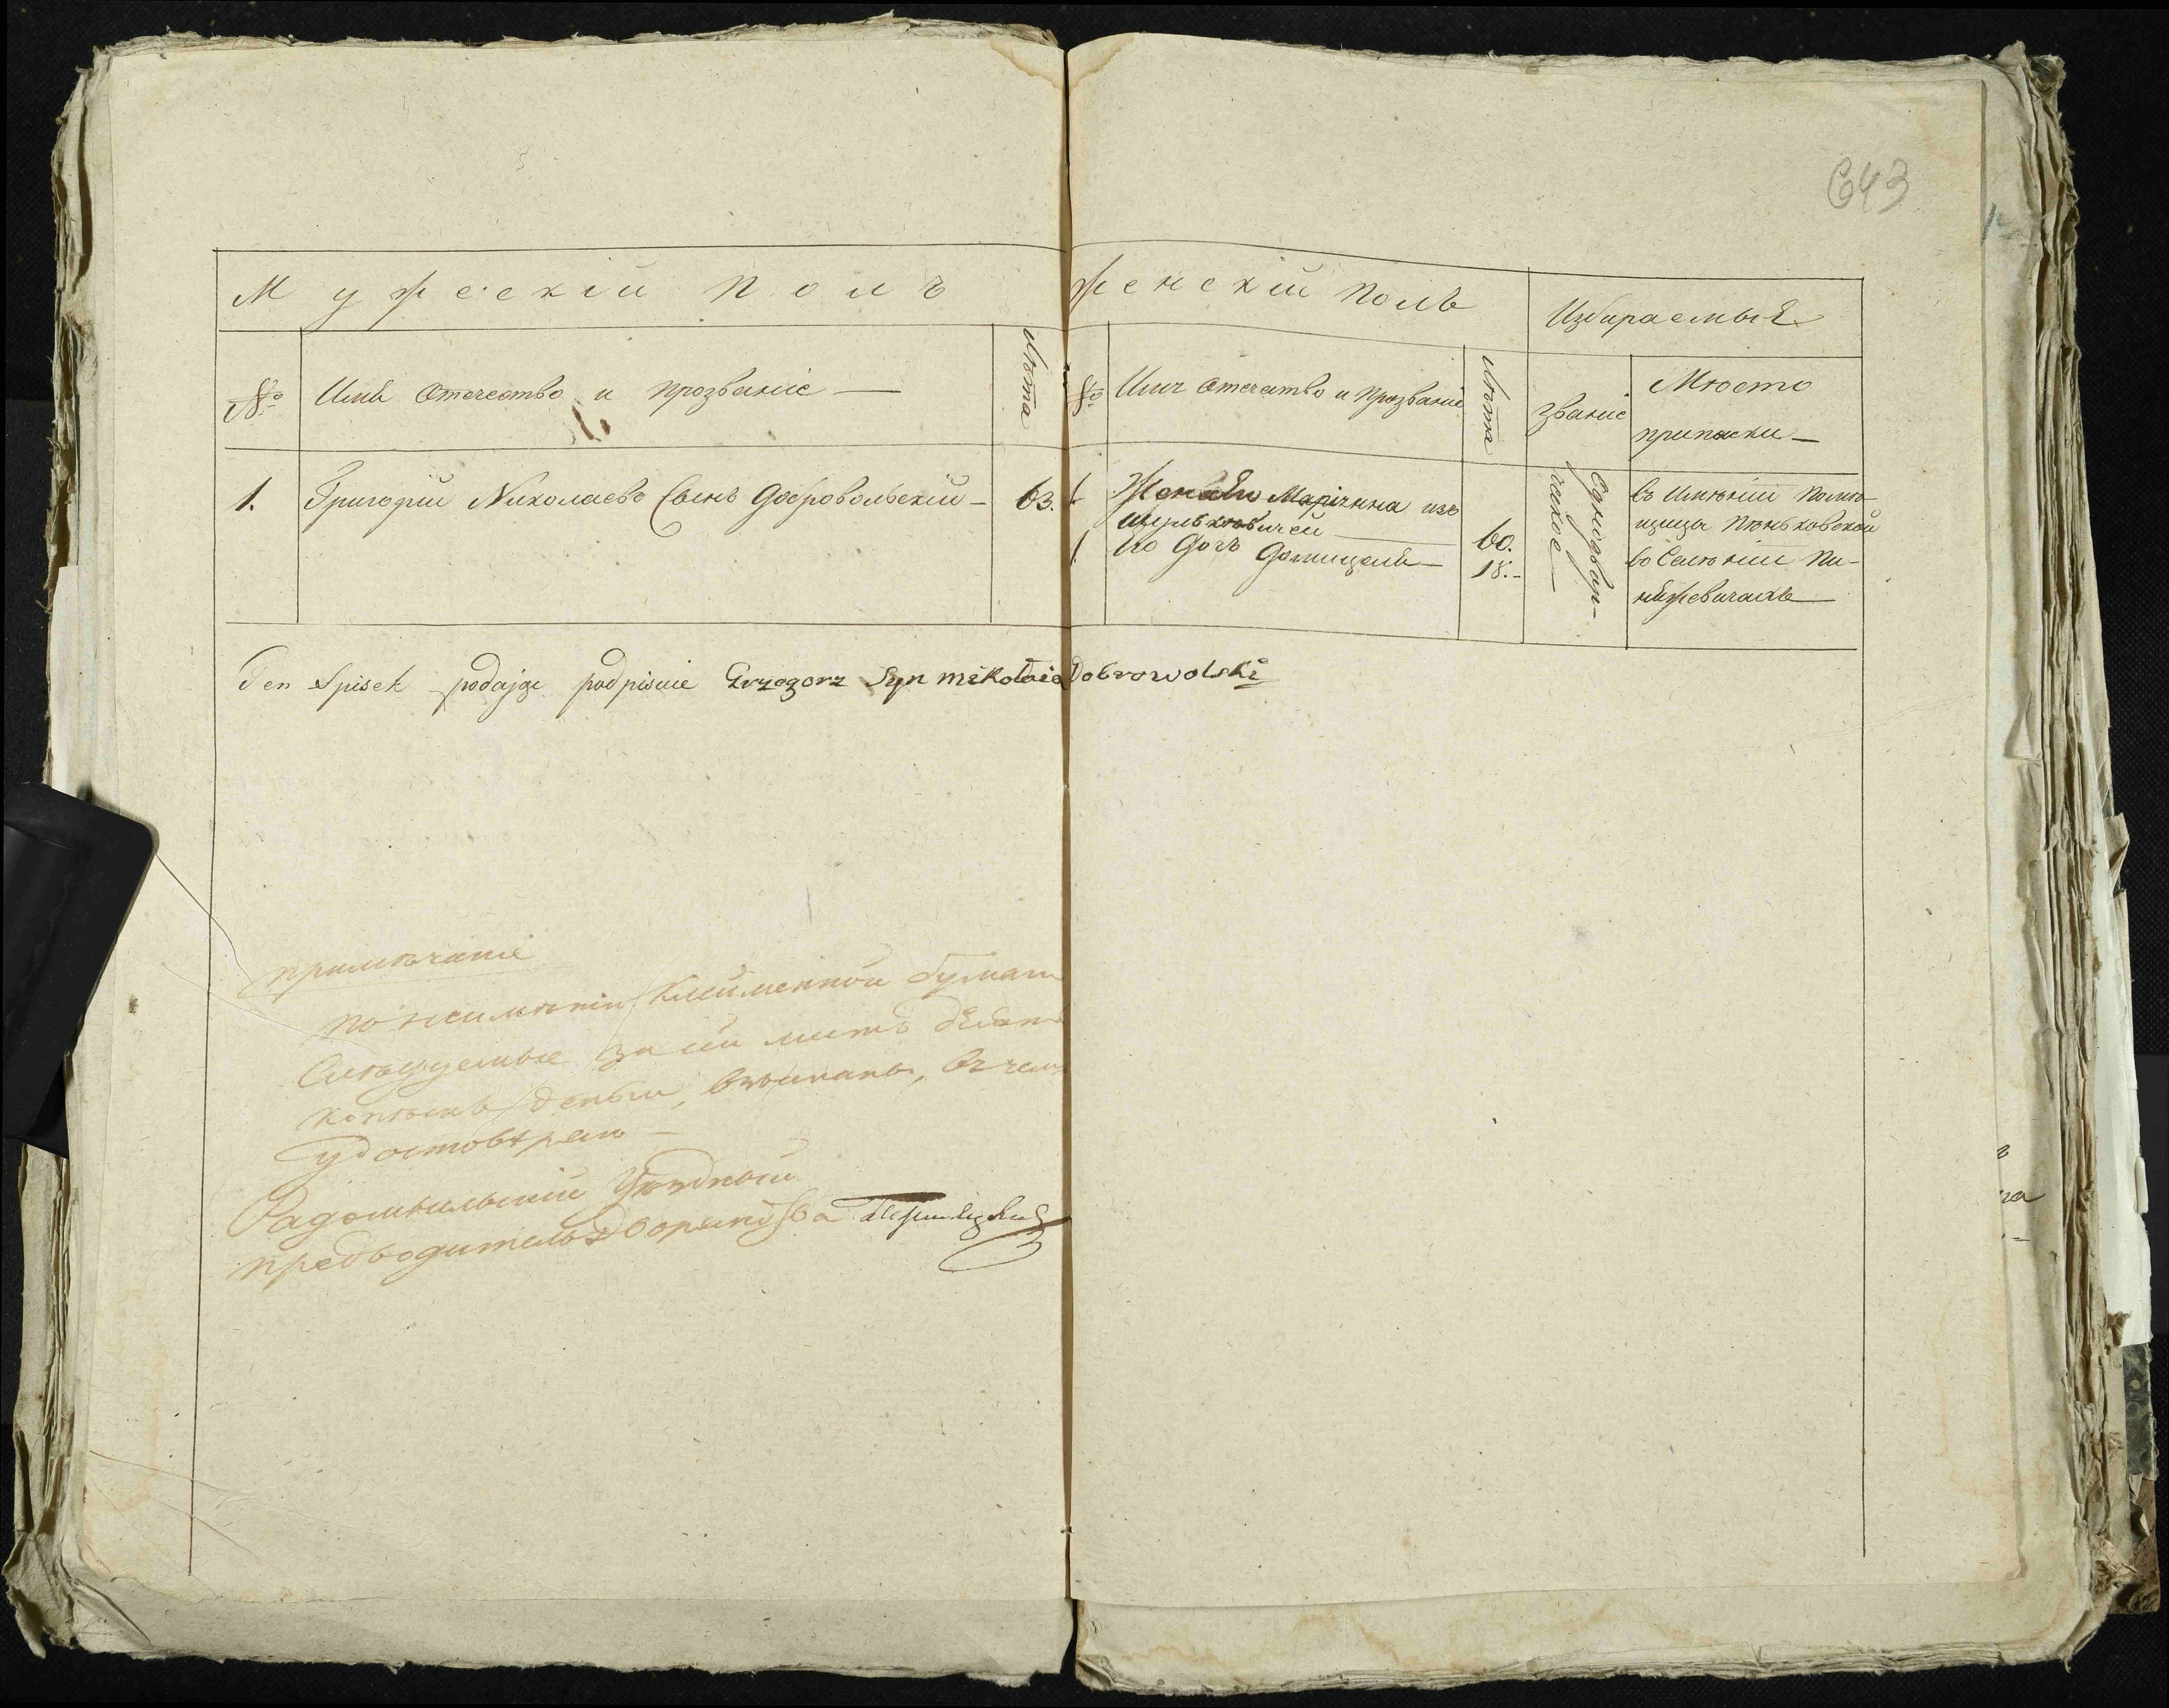 643
Мужескій полъ
Женскій полъ
Избираемыя
№
Имя отечество и прозваніе —
Лѣта
№
Имя отечество и прозваніе
Лѣта
званіе
Мѣсто
приписки —
1. Григорій Николаевъ Сынъ Добровольскій — 63.
1 Жена Его Маріянна изъ
60.
1. Его дочь Домицеля — 18. —
Однодвор-
ческое —
въ имѣніи помѣ-
щицы Пѣньковской
въ Селѣніи Пи-
нижевичахъ —
Ten Spisek podając podpisuie Grzegorz Syn Mikołaia Dobrowolski
примѣчаніе
по неимѣнію Клейменной бумаги
Слѣдуемые за ій листъ девян
копѣекъ деньги, взысканы, въ чемъ
удостовѣряю —
Радомысльскій Уѣздный
предводитель дворянства